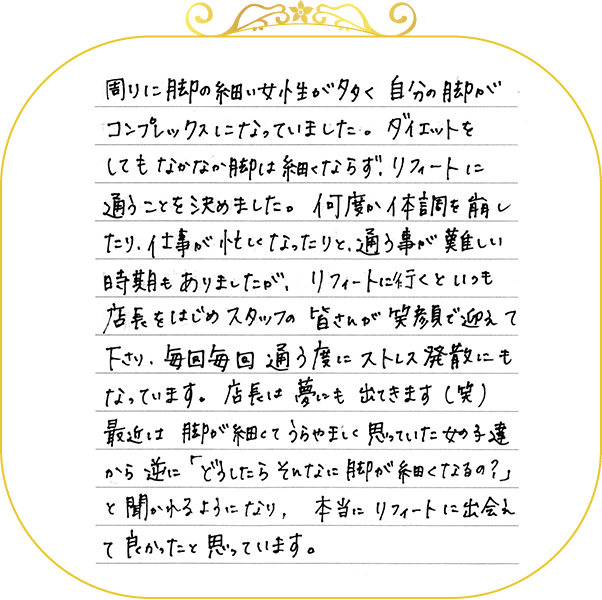 周りに脚の細い女性が多く 自分の脚が
コンプレックスになっていました。ダイエットを
してもなかなか脚は細くならず、リフィートに
通うことを決めました。何度か体調を崩し
たり、仕事が忙しくなったりと、通う事が難しい
時期もありましたが、リフィートに行くといつも
店長をはじめスタッフの皆さんが笑顔で迎えて
下さり、毎回毎回通う度にストレス発散にも
なっています。店長は夢にも出てきます(笑)
最近は 脚が細くてうらやましく思っていた女の子達
から逆に「どうしたらそんなに脚が細くなるの?」
と聞かれるようになり, 本当にリフィートに出会え
て良かったと思っています。